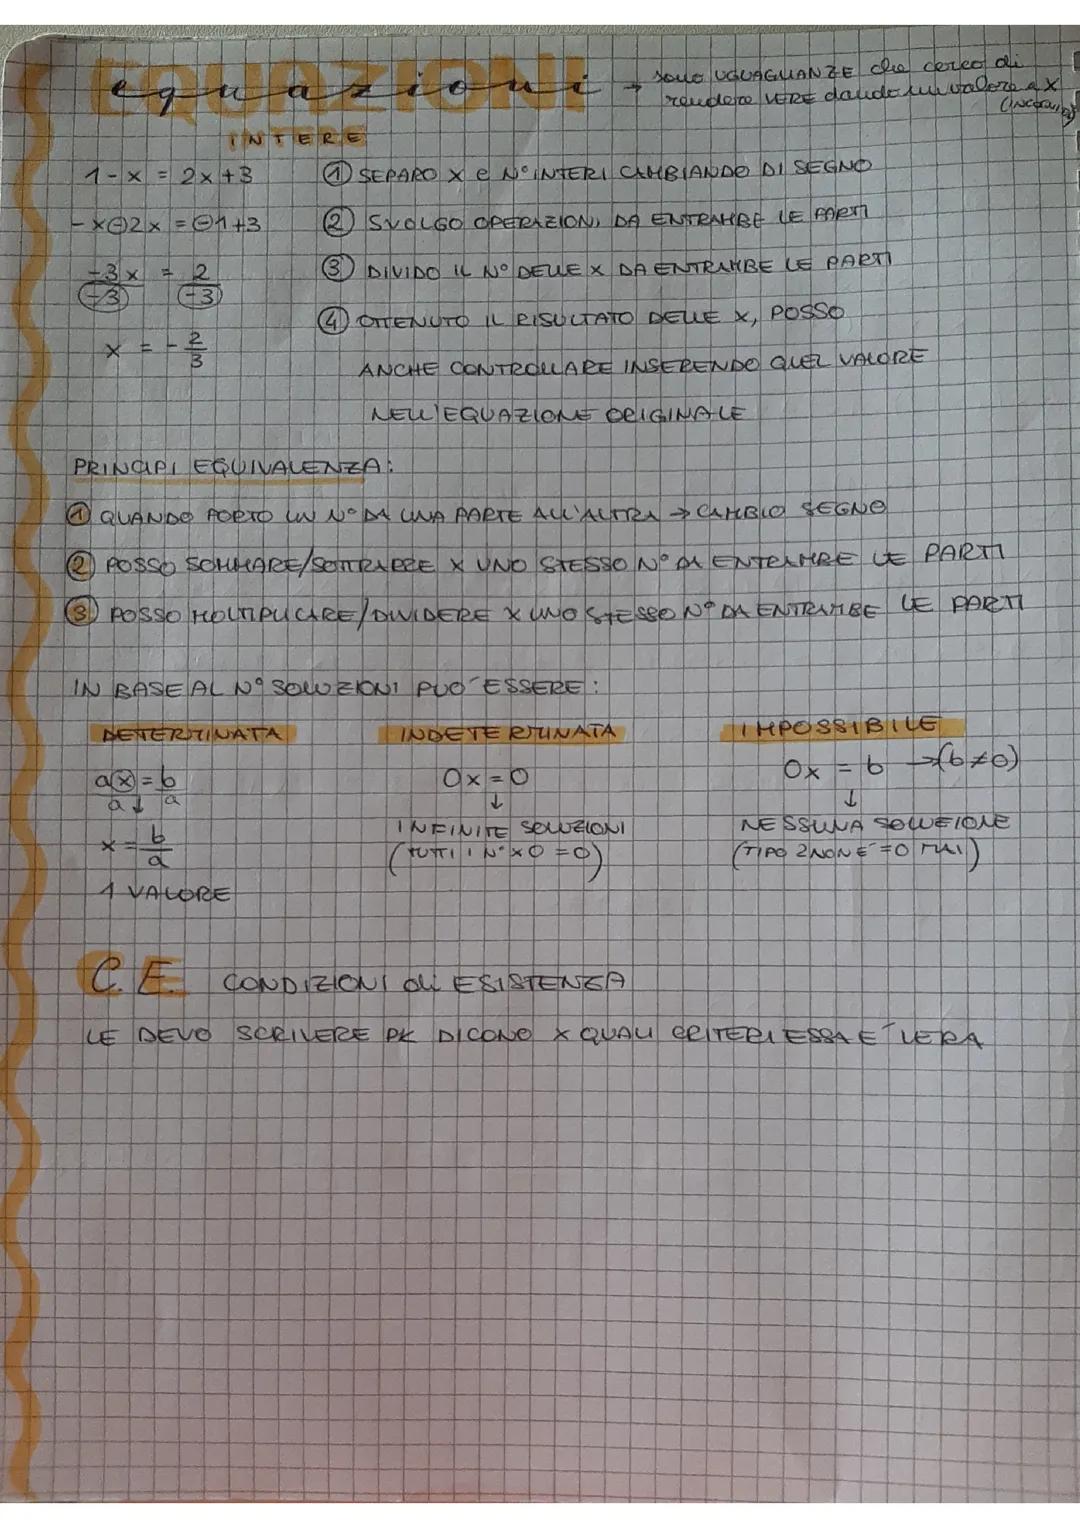 EQUAZIONI
equazioni → sono UGUAGLIANZE che cerco di
rendere VERE dando un valore a X
(incognita)
INTERE
1-x = 2x+3
① SEPARO X e N° INTERI CAMBIANDO DI SEGNO
-x⊖2x = ⊖1+3
② SVOLGO OPERAZIONI DA ENTRAMBE LE PARTI
-3x/(-3) = 2/(-3)
③ DIVIDO IL N° DELLE X DA ENTRAMBE LE PARTI
x = -2/3
④ OTTENUTO IL RISULTATO DELLE X, POSSO
ANCHE CONTROLLARE INSERENDO QUEL VALORE
NELL'EQUAZIONE ORIGINALE
PRINCIPI EQUIVALENZA:
① QUANDO PORTO UN N° DA UNA PARTE ALL'ALTRA → CAMBIO SEGNO
② POSSO SOMMARE/SOTTRARRE X UNO STESSO N° DA ENTRAMBE LE PARTI
③ POSSO MOLTIPLICARE/DIVIDERE X UNO STESSO N° DA ENTRAMBE LE PARTI
IN BASE AL N° SOLUZIONI PUO' ESSERE:
DETERMINATA
a(x)/a = b/a
↓
x = b/a
1 VALORE
INDETERMINATA
0x = 0
↓
INFINITE SOLUZIONI
(TUTTI I N° X 0 = 0)
IMPOSSIBILE
0x = b → (b≠0)
↓
NESSUNA SOLUZIONE
(TIPO 2 NON E' =0 MAI)
C.E. CONDIZIONI di ESISTENZA
LE DEVO SCRIVERE PK DICONO X QUALI CRITERI ESSA E' VERA